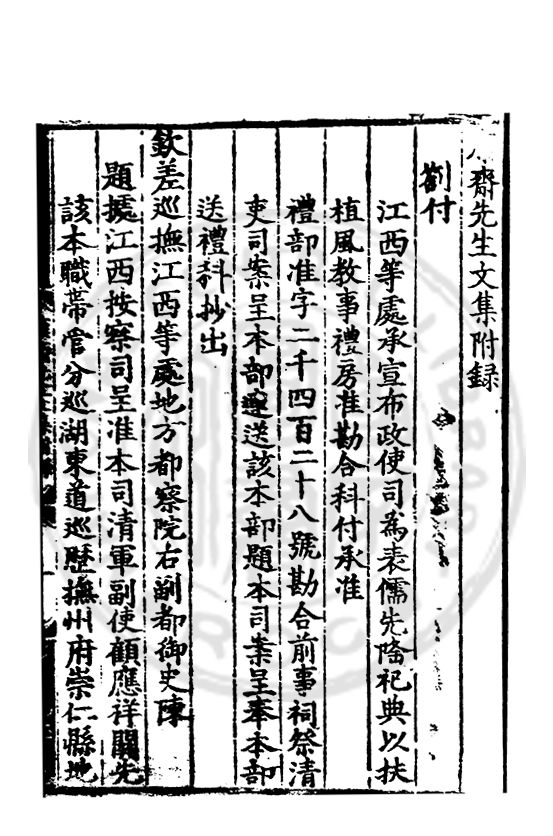 齋先生文集附録
劄付
江西等處承宣布政使司為表儒先隆祀典以扶
植風教事禮房准勘合科付承准
禮部准字二千四百二十八號勘合前事祠祭清
吏司案呈本部連送該本部題本司案呈奉本部
送禮科抄出
欽差巡撫江西等處地方都察院右副都御史陳
題據江西按察司呈准本司清軍副使顧應祥關先
該本職帶管分巡湖東道巡歷撫州府崇仁縣地